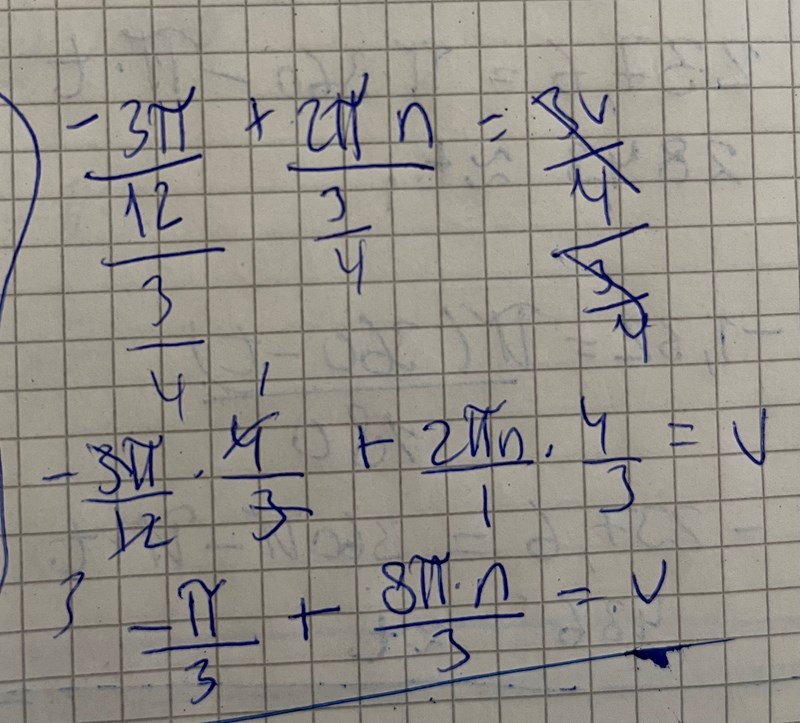 -3π/12/3/4 + 2πn/3/4 = 3v/4/3/4
-3π/12 · 4/3 + 2πn/1 · 4/3 = v
1
3
-π/3 + 8π·n/3 = v